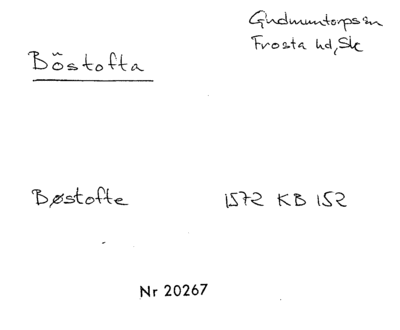 Gudmuntorps sn
Frosta hd, Sk
Böstofta
Bøstofte 1572 KB 152
Nr 20267